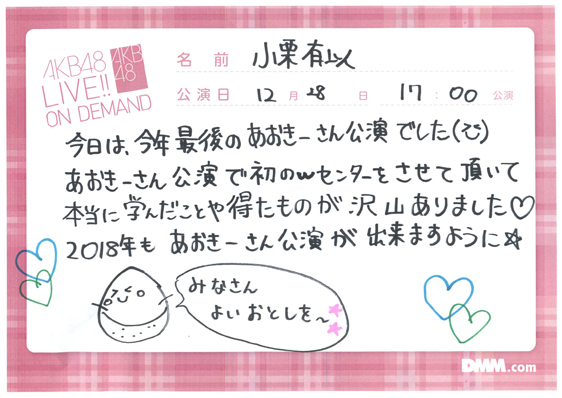 AKB48
LIVE!!
ON DEMAND
AKB
48
名前 小栗有以
公演日 12月28日 17:00公演
今日は、今年最後のあおきーさん公演でした(て")
あおきーさん公演で初のwセンターをさせて頂いて
本当に学んだことや得たものが沢山ありました♡
2018年も あおきーさん公演が出来ますように☆
みなさん
よいおとしを〜
DMM.com